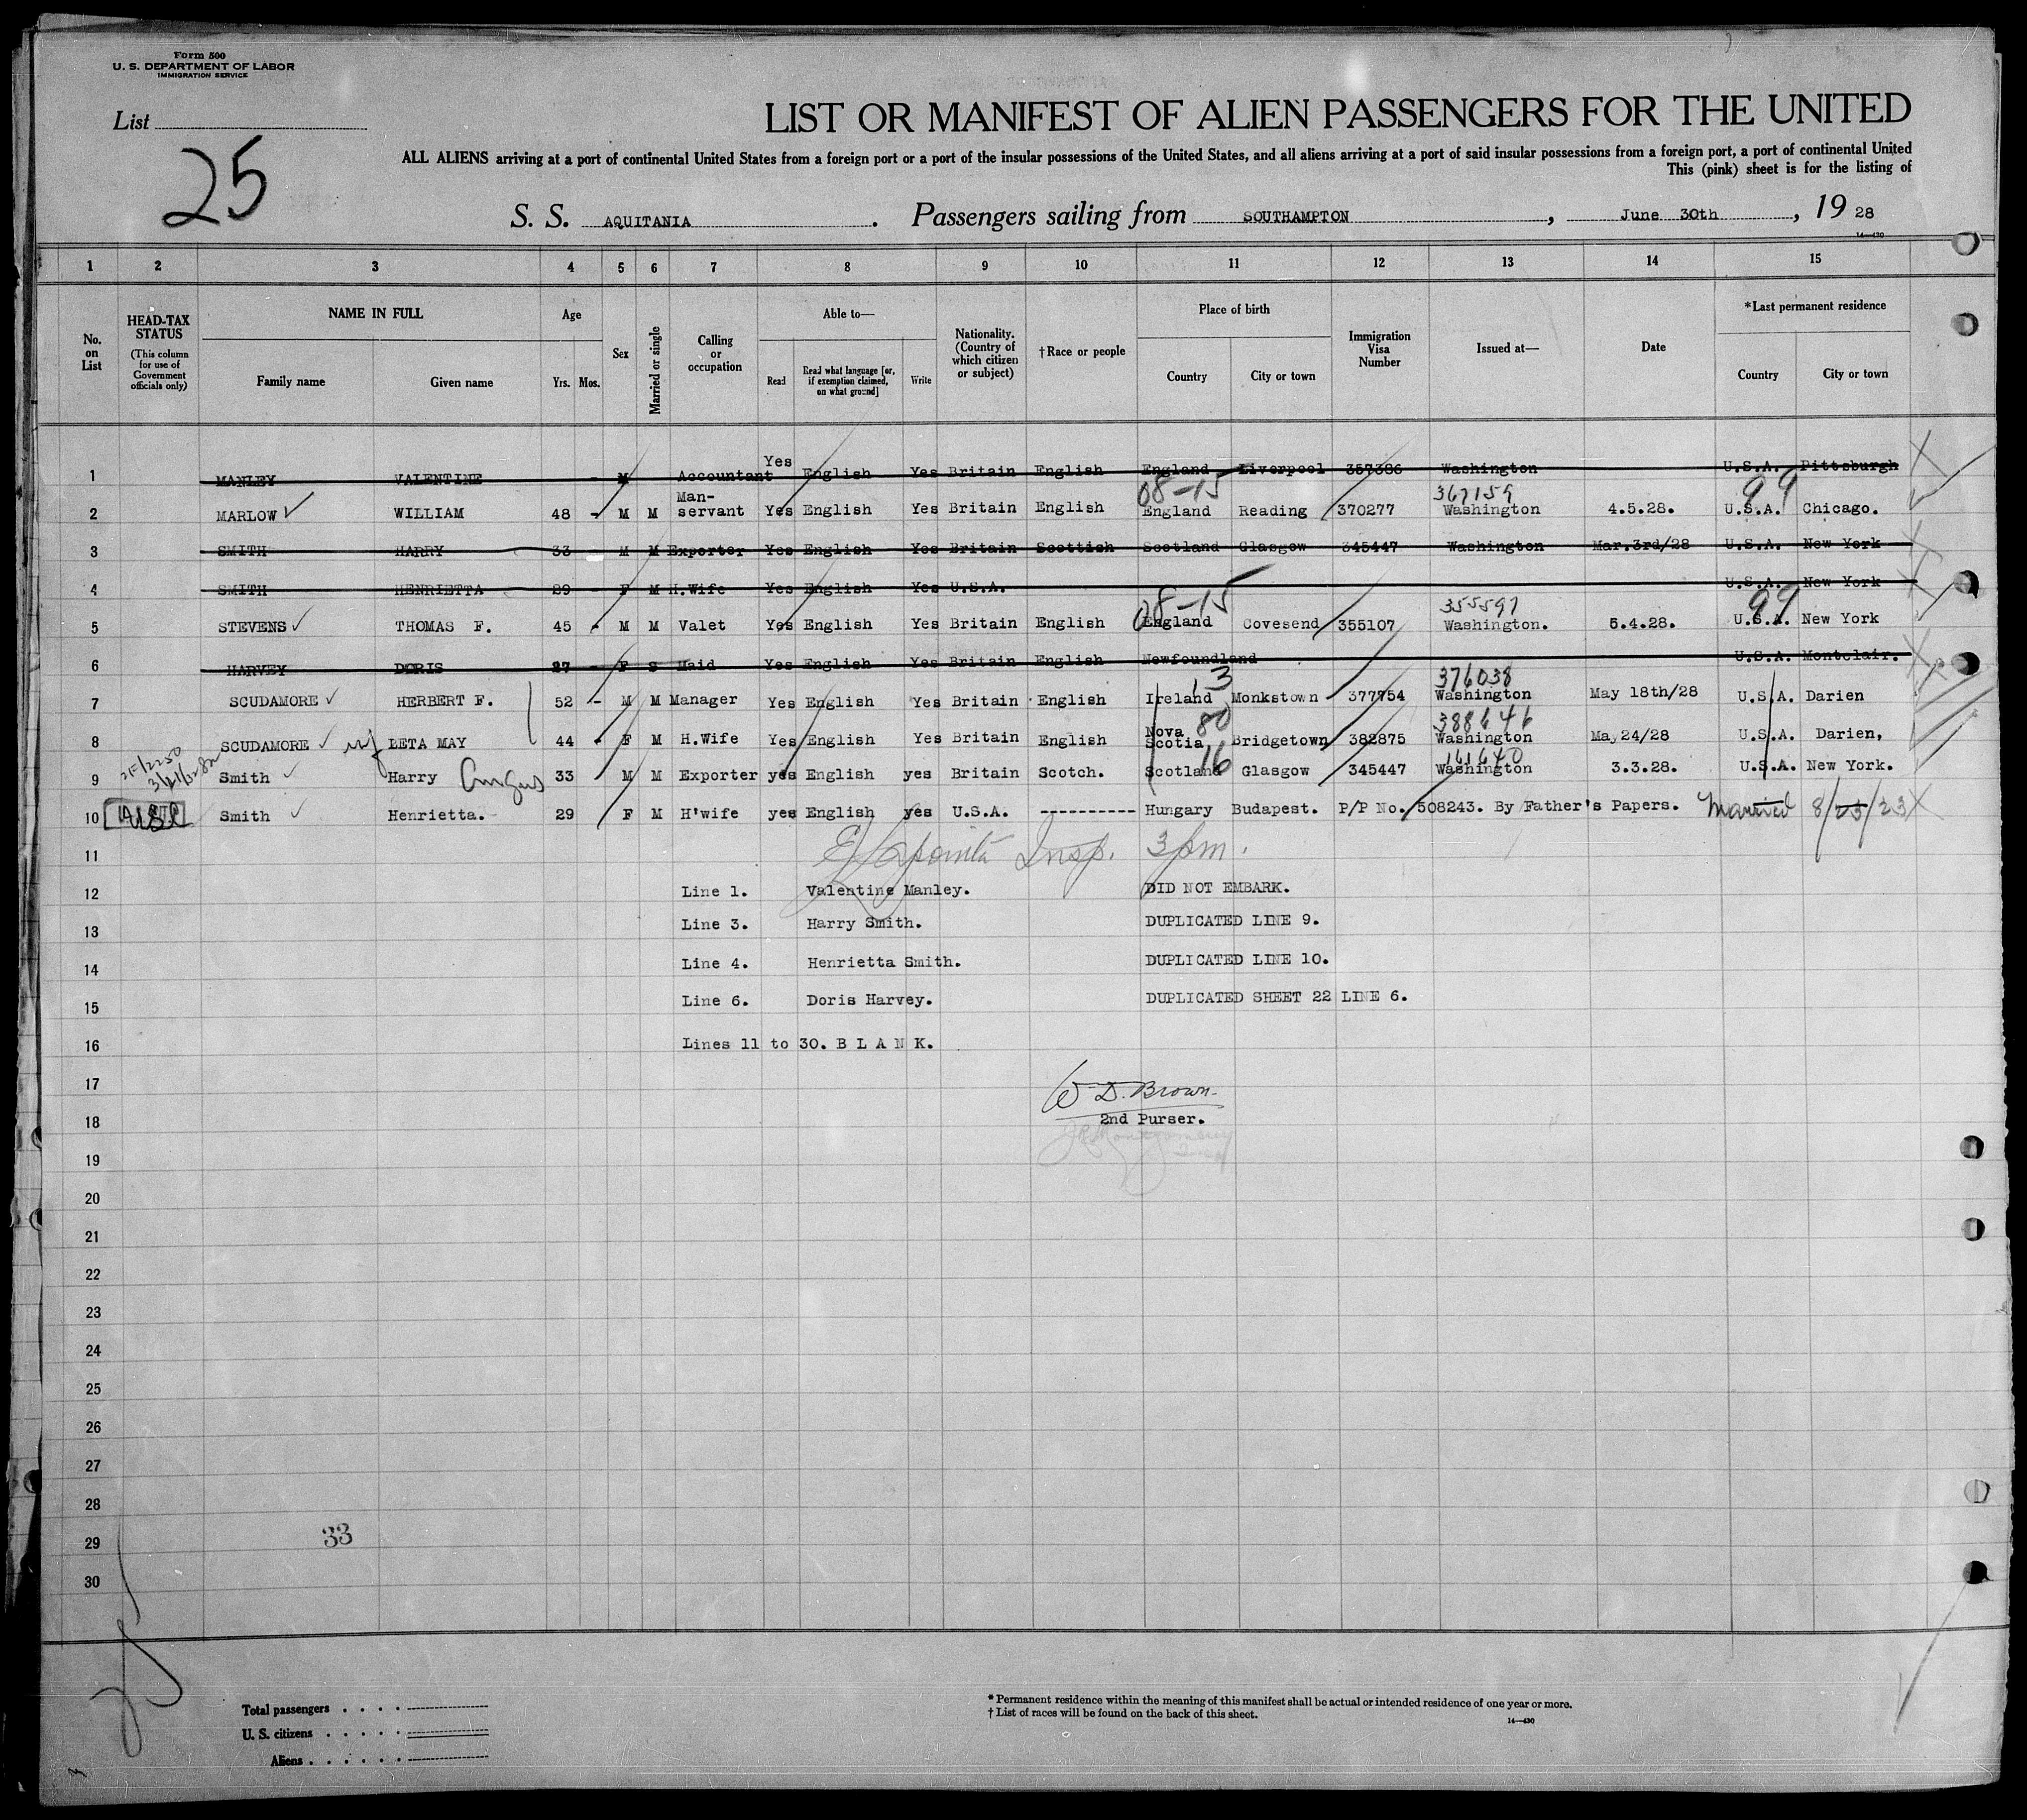 Form 500
U. S. DEPARTMENT OF LABOR
IMMIGRATION SERVICE
List
25
LIST OR MANIFEST OF ALIEN PASSENGERS FOR THE UNITED
ALL ALIENS arriving at a port of continental United States from a foreign port or a port of the insular possessions of the United States, and all aliens arriving at a port of said insular possessions from a foreign port, a port of continental United
This (pink) sheet is for the listing of
S. S. AQUITANIA . Passengers sailing from SOUTHAMPTON , June 30th , 19 28
14—430
1 2 3 4 5 6 7 8 9 10 11 12 13 14 15
No. on List
HEAD-TAX STATUS (This column for use of Government officials only)
NAME IN FULL
Family name Given name
Age
Yrs. Mos.
Sex
Married or single
Calling or occupation
Able to—
Read Read what language [or, if exemption claimed, on what ground] Write
Nationality. (Country of which citizen or subject)
†Race or people
Place of birth
Country City or town
Immigration Visa Number
Issued at—
Date
*Last permanent residence
Country City or town
1 MANLEY VALENTINE - M Accountant Yes English Yes Britain English England Liverpool 357386 Washington U.S.A. Pittsburgh
08-15 367159 99
2 MARLOW WILLIAM 48 - M M Man-servant Yes English Yes Britain English England Reading 370277 Washington 4.5.28. U.S.A. Chicago.
3 SMITH HARRY 33 - M M Exporter Yes English Yes Britain Scottish Scotland Glasgow 345447 Washington Mar.3rd/28 U.S.A. New York
4 SMITH HENRIETTA 29 - F M H.Wife Yes English Yes U.S.A. U.S.A. New York
08-15 355597 99
5 STEVENS THOMAS F. 45 - M M Valet Yes English Yes Britain English England Covesend 355107 Washington. 5.4.28. U.S.A. New York
6 HARVEY DORIS 27 - F S Maid Yes English Yes Britain English Newfoundland U.S.A. Montclair.
13 376038
7 SCUDAMORE HERBERT F. 52 - M M Manager Yes English Yes Britain English Ireland Monkstown 377754 Washington May 18th/28 U.S.A. Darien
80 388646
8 SCUDAMORE wf LETA MAY 44 - F M H.Wife Yes English Yes Britain English Nova Scotia Bridgetown 382875 Washington May24/28 U.S.A. Darien,
16 161640
9 Smith Harry Angus 33 M M Exporter yes English yes Britain Scotch. Scotland Glasgow 345447 Washington 3.3.28. U.S.A. New York.
10 USC Smith Henrietta. 29 F M H'wife yes English yes U.S.A. ---------- Hungary Budapest. P/P No. 508243. By Father's Papers. Married 8/23/23
11 Insp. 3pm.
12 Line 1. Valentine Manley. DID NOT EMBARK.
13 Line 3. Harry Smith. DUPLICATED LINE 9.
14 Line 4. Henrietta Smith. DUPLICATED LINE 10.
15 Line 6. Doris Harvey. DUPLICATED SHEET 22 LINE 6.
16 Lines 11 to 30. B L A N K.
17 W D. Brown.
18 2nd Purser.
19
20
21
22
23
24
25
26
27
28
29 33
30
Total passengers . . . .
U. S. citizens . . . . .
Aliens . . . . . .
* Permanent residence within the meaning of this manifest shall be actual or intended residence of one year or more.
† List of races will be found on the back of this sheet.
14—430